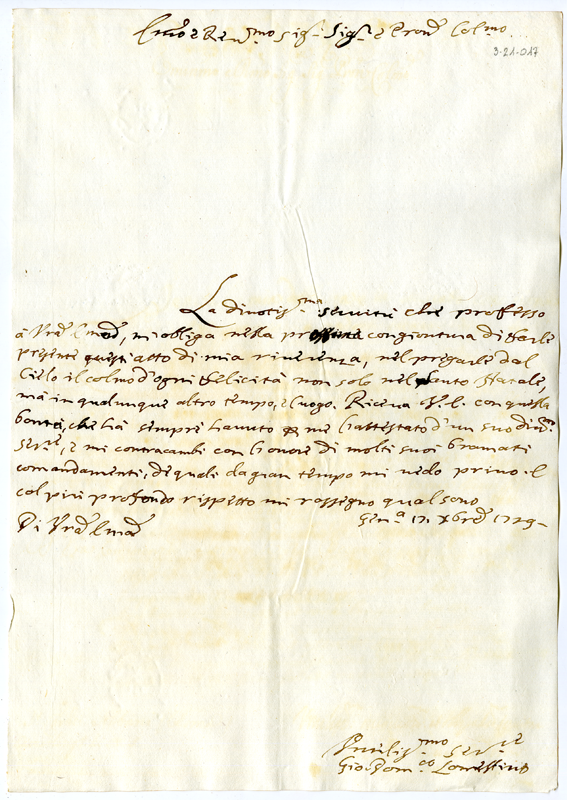 Em.o e Rev.mo Sig.r Sig.r e Pron Colmo
3-21-017
La divotis.ma servitù che professo
à Vra Em.a, mi obliga nella congiontura di farle
presente questi atto di mia riverenza, nel pregarle dal
Cielo il colmo d'ogni felicità non solo nel Santo Natale,
mà in qualunque altro tempo, e luogo. Riceva V. E. con quella
bontà, che hà sempre hauuto me l'attestato d'un suo div.mo
Ser.re, e mi contracambi con l'honore di molti suoi bramati
comandamenti, de quali da gran tempo mi vedo privo. E
col più profondo rispetto mi rassegno qual sono
Di Vra Em.a
Gen.a 17. Xbre 1729
Humilis.mo Ser.re
Gio: Dom.co Lomellino